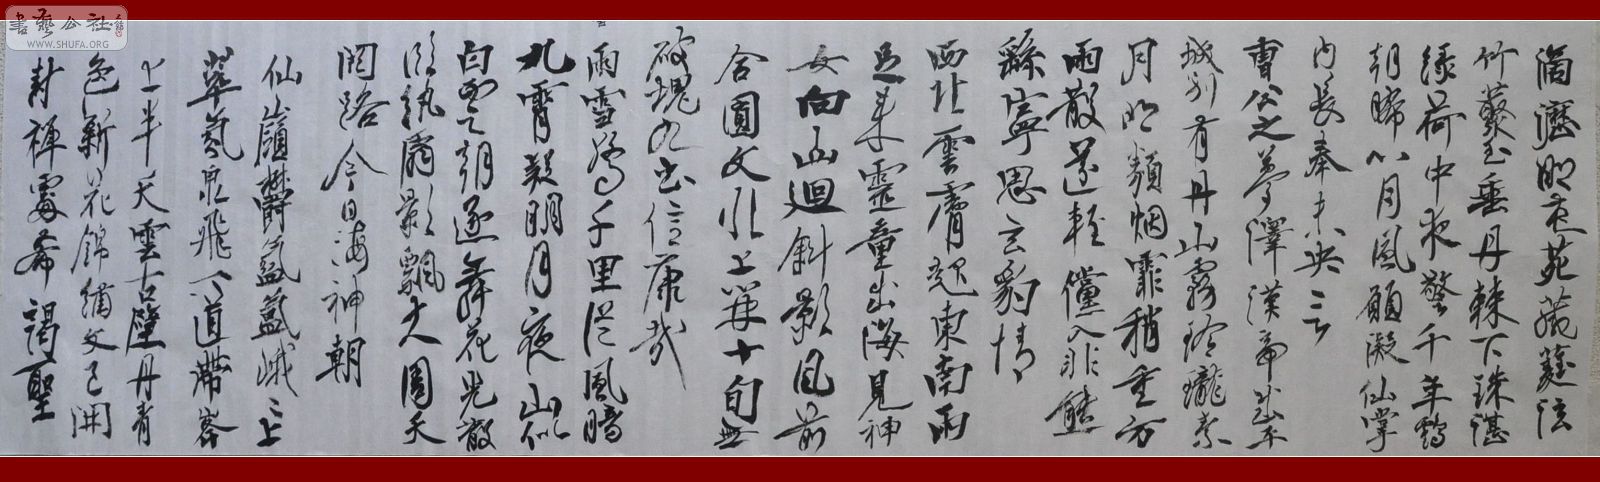 滴瀝明花苑葳蕤泫
竹叢玉垂丹棘下珠湛
綠荷中夜警千年鶴
朝晞八月風願凝仙掌
內長奉未央宮
曹公之夢澤漢帝出平
城別有丹山霧玲瓏素
月明類烟霏稍重方
雨散還輕儻入非熊
繇寧思玄豹情
西北雲膚起東南雨
足来靈童出海見神
女向山迴斜影風前
合圓文水上開十旬無
破塊九土信康哉
雨雪驚千里從風暗
九霄疑明月夜山似
白雲朝逐舞花光散
臨歌扇影飄大周天
闕路今日海神朝
仙嶺鬱氤氳峨々上
翠氛泉飛一道帶峯
上半天雲古壁丹青
色新花錦繡文已開
封禪處希謁聖
書藝公社
WWW.SHUFA.ORG